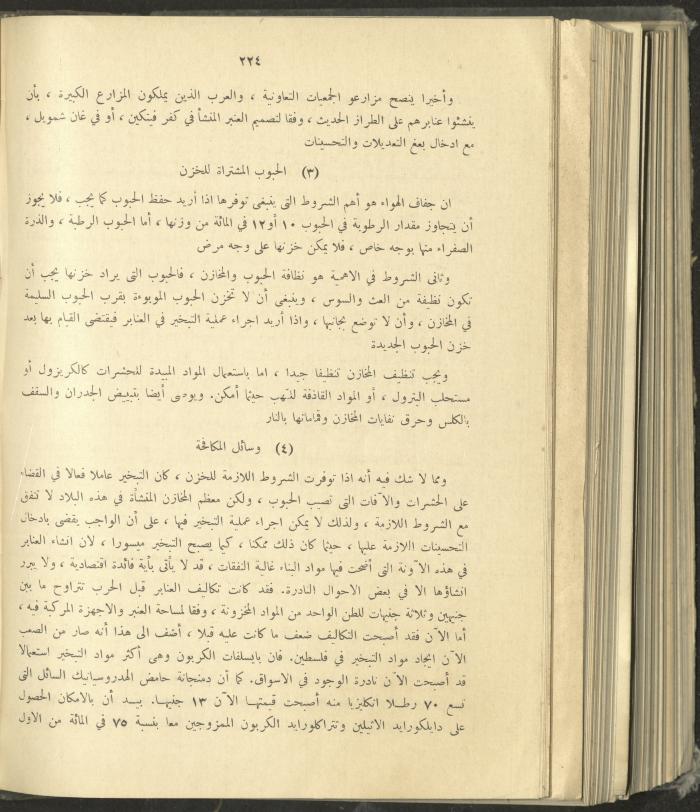 ٢٢٤
وأخيرا ينصح مزارعو الجمعيات التعاونية ، والعرب الذين يملكون المزارع الكبيرة ، بأن
ينشئوا عنابرهم على الطراز الحديث ، وفقا لتصميم العنبر المنشأ في كفر فيتكين ، أو في غان شمويل ،
مع ادخال بعض التعديلات والتحسينات
(٣) الحبوب المشتراة للخزن
ان جفاف الهواء هو أهم الشروط التى ينبغى توفرها اذا أريد حفظ الحبوب كما يجب ، فلا يجوز
أن يتجاوز مقدار الرطوبة في الحبوب ١٠ أو ١٢ في المائة من وزنها ، أما الحبوب الرطبة ، والذرة
الصفراء منها بوجه خاص ، فلا يمكن خزنها على وجه مرض
وثانى الشروط في الاهمية هو نظافة الحبوب والمخازن ، فالحبوب التى يراد خزنها يجب أن
تكون نظيفة من العث والسوس ، وينبغى أن لا تخزن الحبوب الموبوءة بقرب الحبوب السليمة
في المخازن ، وأن لا توضع بجانبها ، واذا أريد اجراء عملية التبخير في العنابر فيقتضى القيام بها بعد
خزن الحبوب الجديدة
ويجب تنظيف المخازن تنظيفا جيدا ، اما باستعمال المواد المبيدة للحشرات كالكريزول أو
مستحلب البترول ، أو المواد القاذفة للهب حيثما أمكن. ويوصى أيضا بتبييض الجدران والسقف
بالكلس وحرق نفايات المخازن وقماماتها بالنار
(٤) وسائل المكافحة
ومما لا شك فيه أنه اذا توفرت الشروط اللازمة للخزن ، كان التبخير عاملا فعالا في القضاء
على الحشرات والآفات التى تصيب الحبوب ، ولكن معظم المخازن المنشأة في هذه البلاد لا تتفق
مع الشروط اللازمة ، ولذلك لا يمكن اجراء عملية التبخير فيها ، على أن الواجب يقضى بادخال
التحسينات اللازمة عليها ، حيثما كان ذلك ممكنا ، كيما يصبح التبخير ميسورا ، لان انشاء العنابر
في هذه الآونة التى أضحت فيها مواد البناء غالية النفقات ، قد لا يأتى بأية فائدة اقتصادية ، ولا يبرر
انشاؤها الا في بعض الاحوال النادرة. فقد كانت تكاليف العنابر قبل الحرب تتراوح ما بين
جنيهين وثلاثة جنيهات للطن الواحد من المواد المخزونة ، وفقا لمساحة العنبر والاجهزة المركبة فيه ،
أما الآن فقد أصبحت التكاليف ضعف ما كانت عليه قبلا ، أضف الى هذا أنه صار من الصعب
الآن ايجاد مواد التبخير في فلسطين. فان بايسلفات الكربون وهى أكثر مواد التبخير استعمالا
قد أصبحت الآن نادرة الوجود في الاسواق. كما أن دمنجانة حامض الهدروسيانيك السائل التى
تسع ٧٠ رطلا انكليزيا منه أصبحت قيمتها الآن ١٣ جنيها. بيد أن بالامكان الحصول
على دايلكورايد الاثيلين وتتراكلورايد الكربون الممزوجين معا بنسبة ٧٥ في المائة من الاول